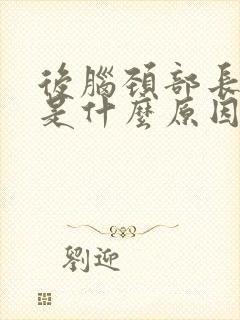 後腦頚部長
是什麼原因
劉迎